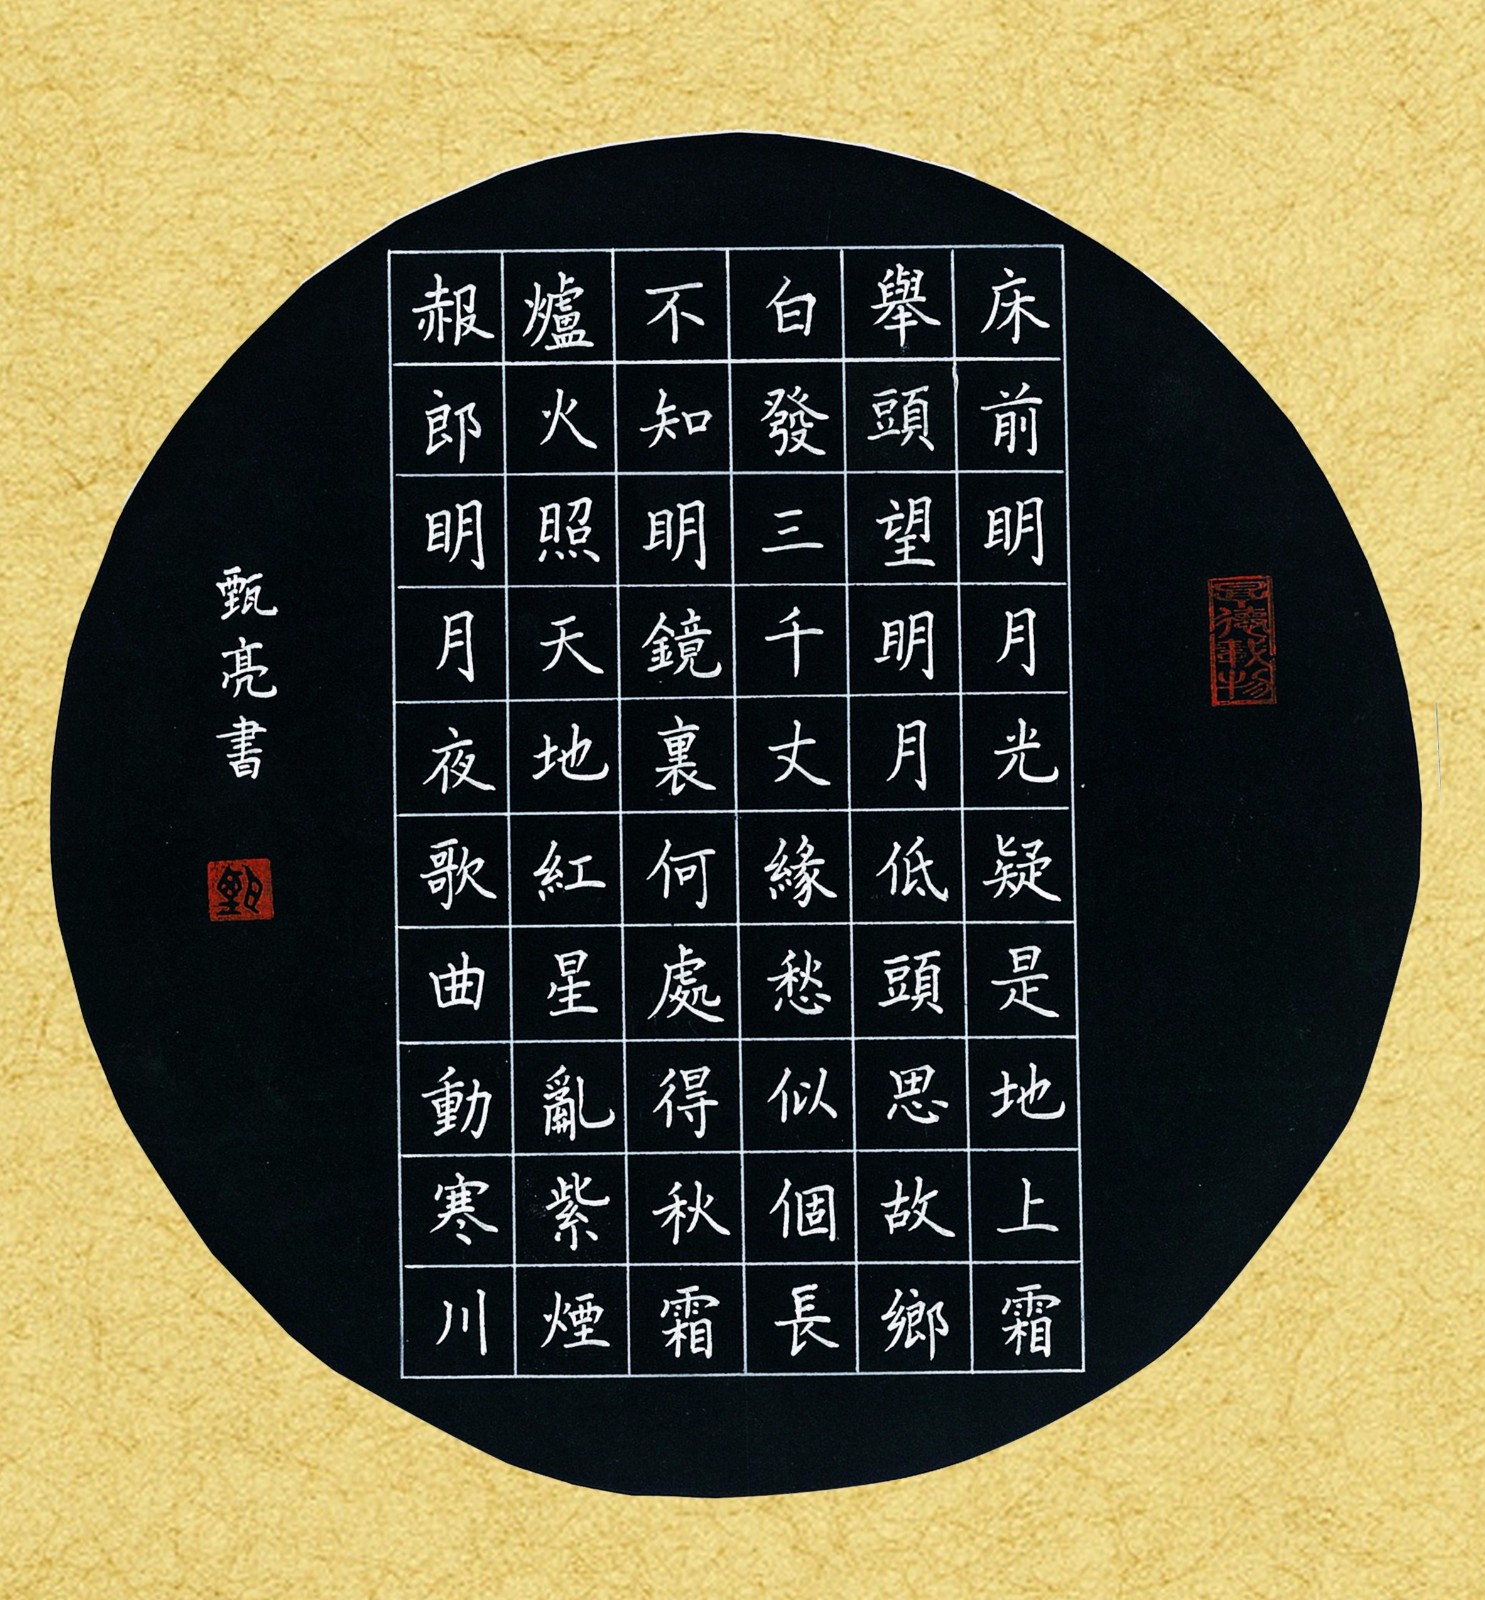 床前明月光疑是地上霜
舉頭望明月低頭思故鄉
白發三千丈緣愁似個長
不知明鏡裏何處得秋霜
爐火照天地紅星亂紫煙
赧郎明月夜歌曲動寒川
甄亮書
厚德載物
甄